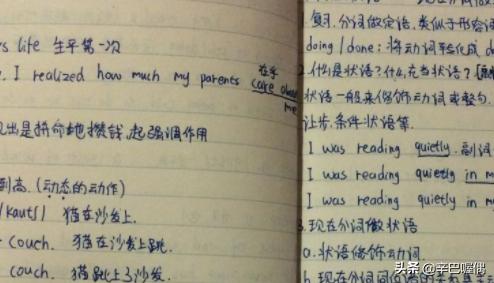 s life 生平第一次
I realized how much my parents care about
在乎
me
出是拼命地攒钱,起强调作用
到高.(动态的动作)
/kaʊtʃ/ 猫在沙发上.
couch. 猫在沙发上跳.
couch. 猫跳上了沙发.
1. 复习.分词做定语,类似于形容词
doing/done: 将动词转化成
2. 什么是状语?什么充当状语?
状语一般来修饰动词或整句.
让步.条件状语等.
I was reading quietly. 副词
I was reading quietly in m
I was reading quietly in m
3. 现在分词做状语
a. 状语修饰动词.
b. 现在分词
头条 @辛巴喔偶